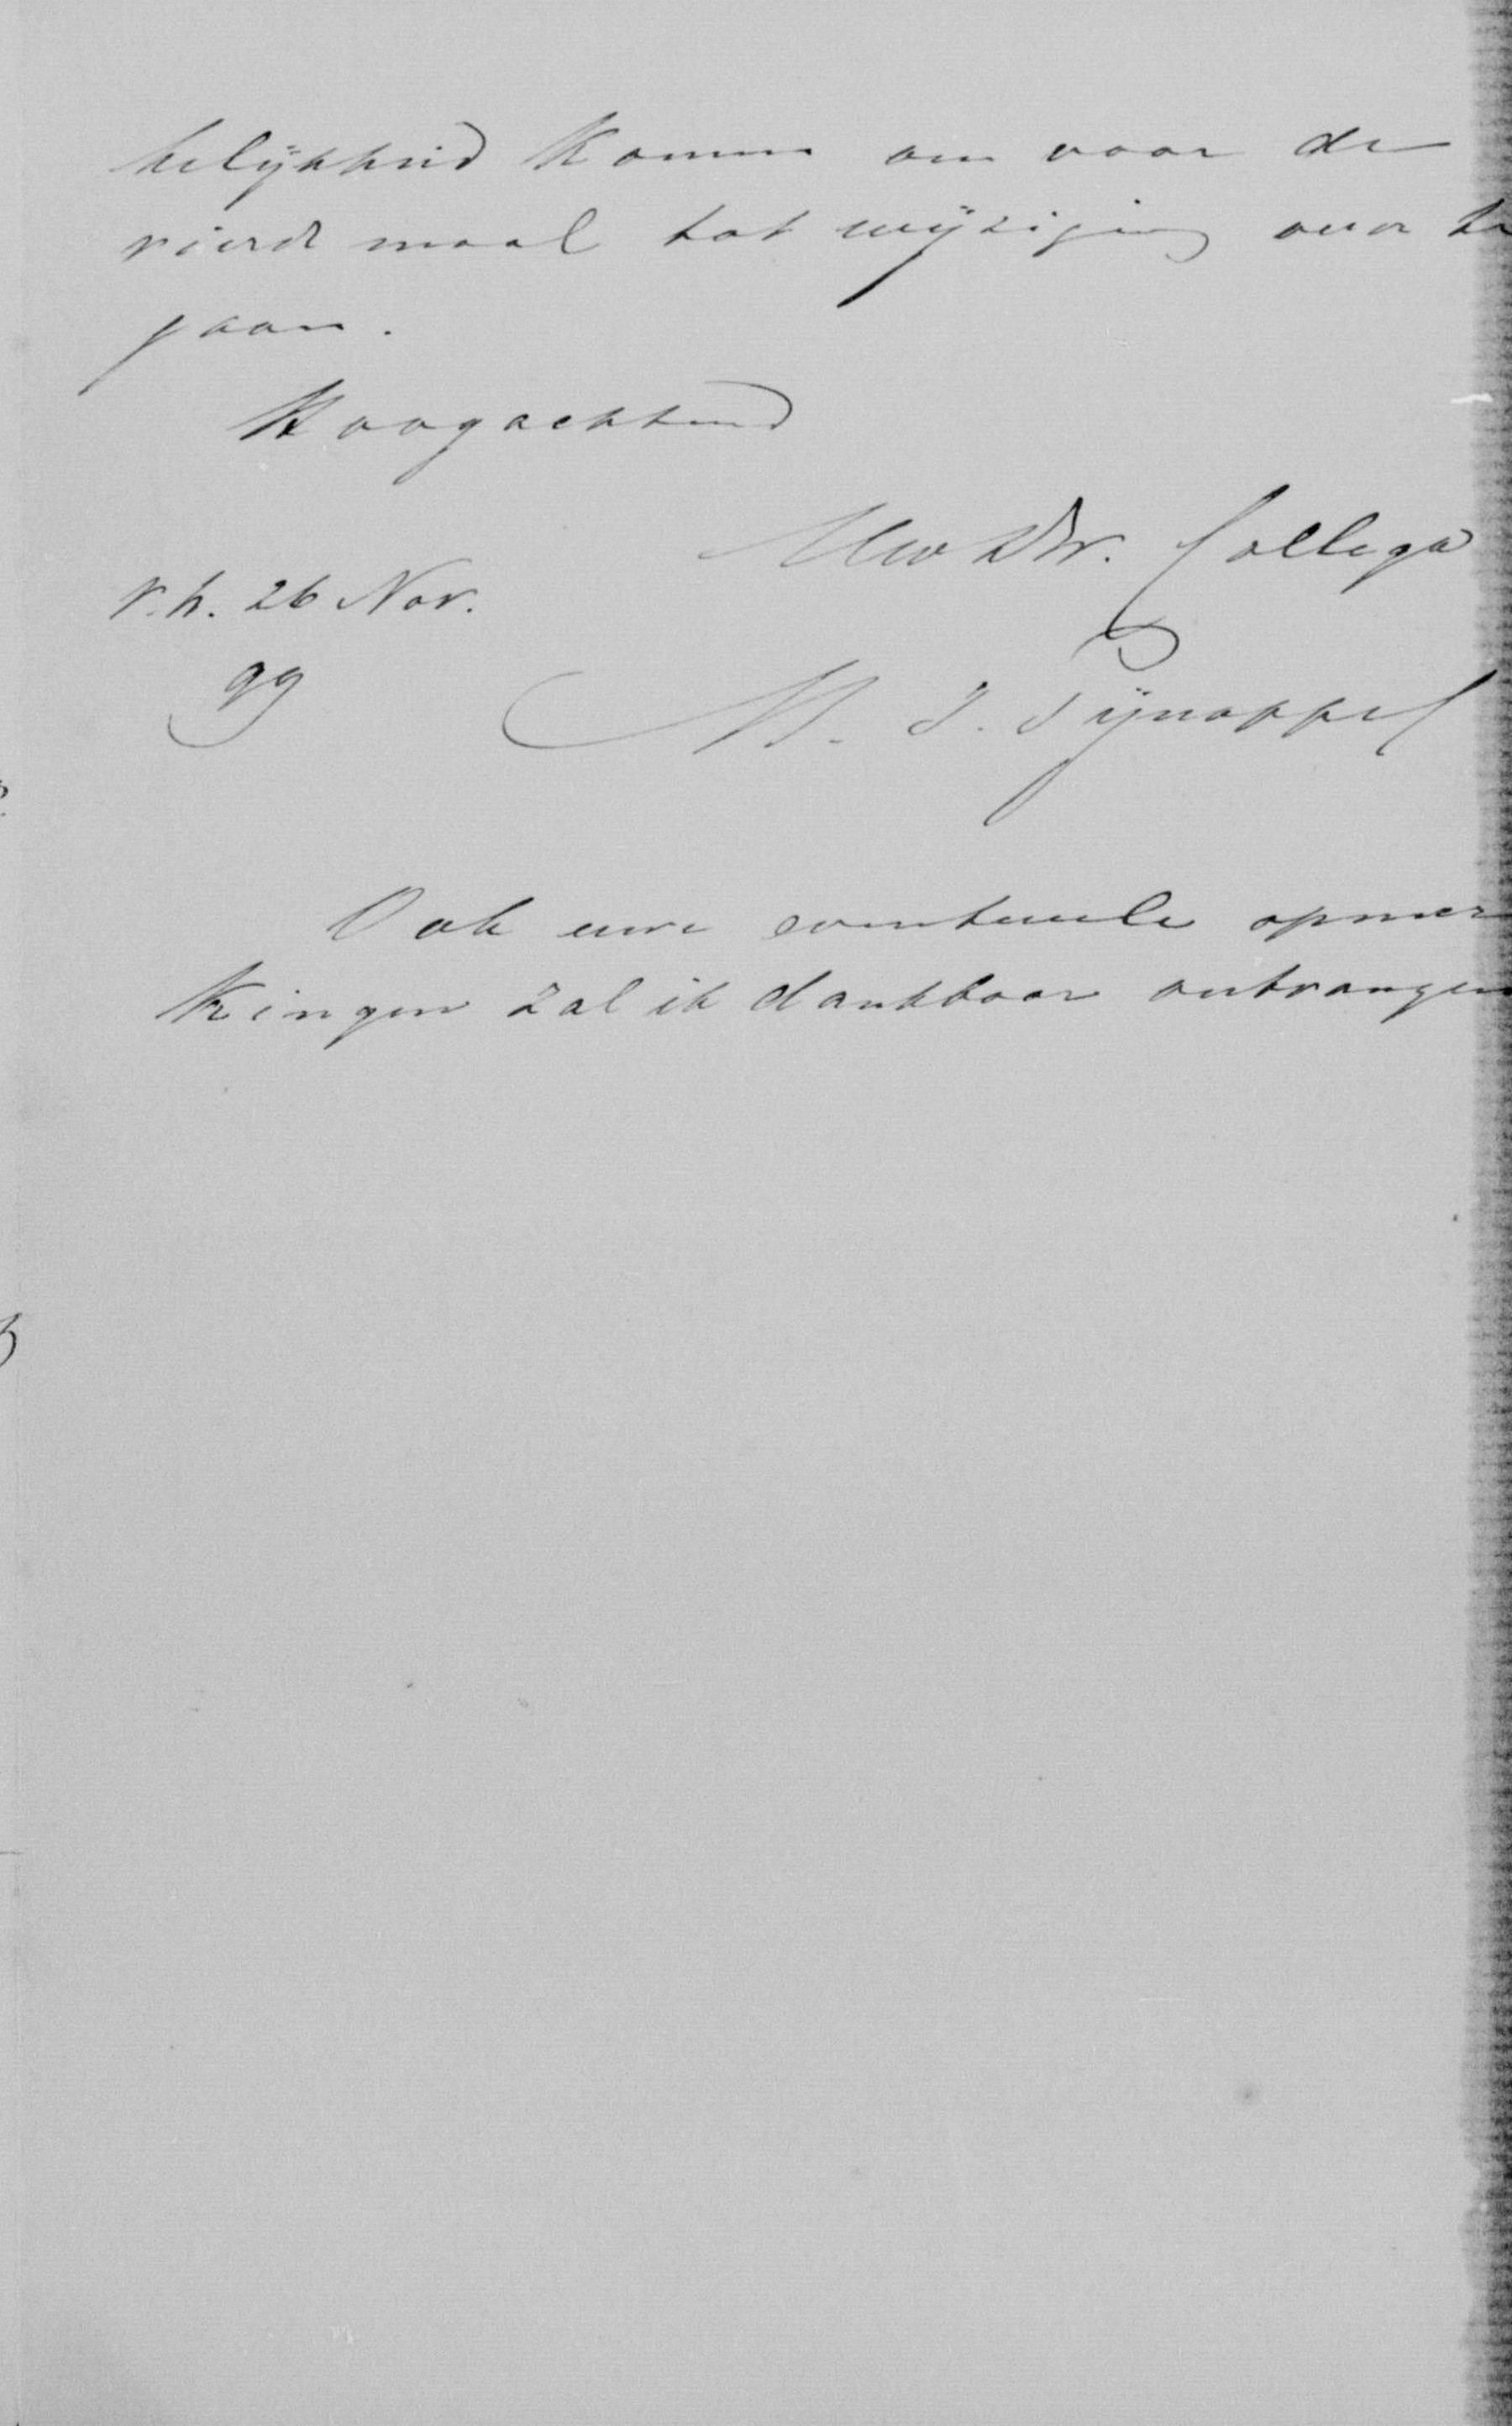 kelijkheid komen om voor de
vierde maal tot wijziging over te
gaan.
Hoogachtend
Uw Dw. Collega
v.h. 26 Nov.
99
M. J. Pijnappel
Ook uwe eventueele opmer
kingen zal ik dankbaar ontvangen